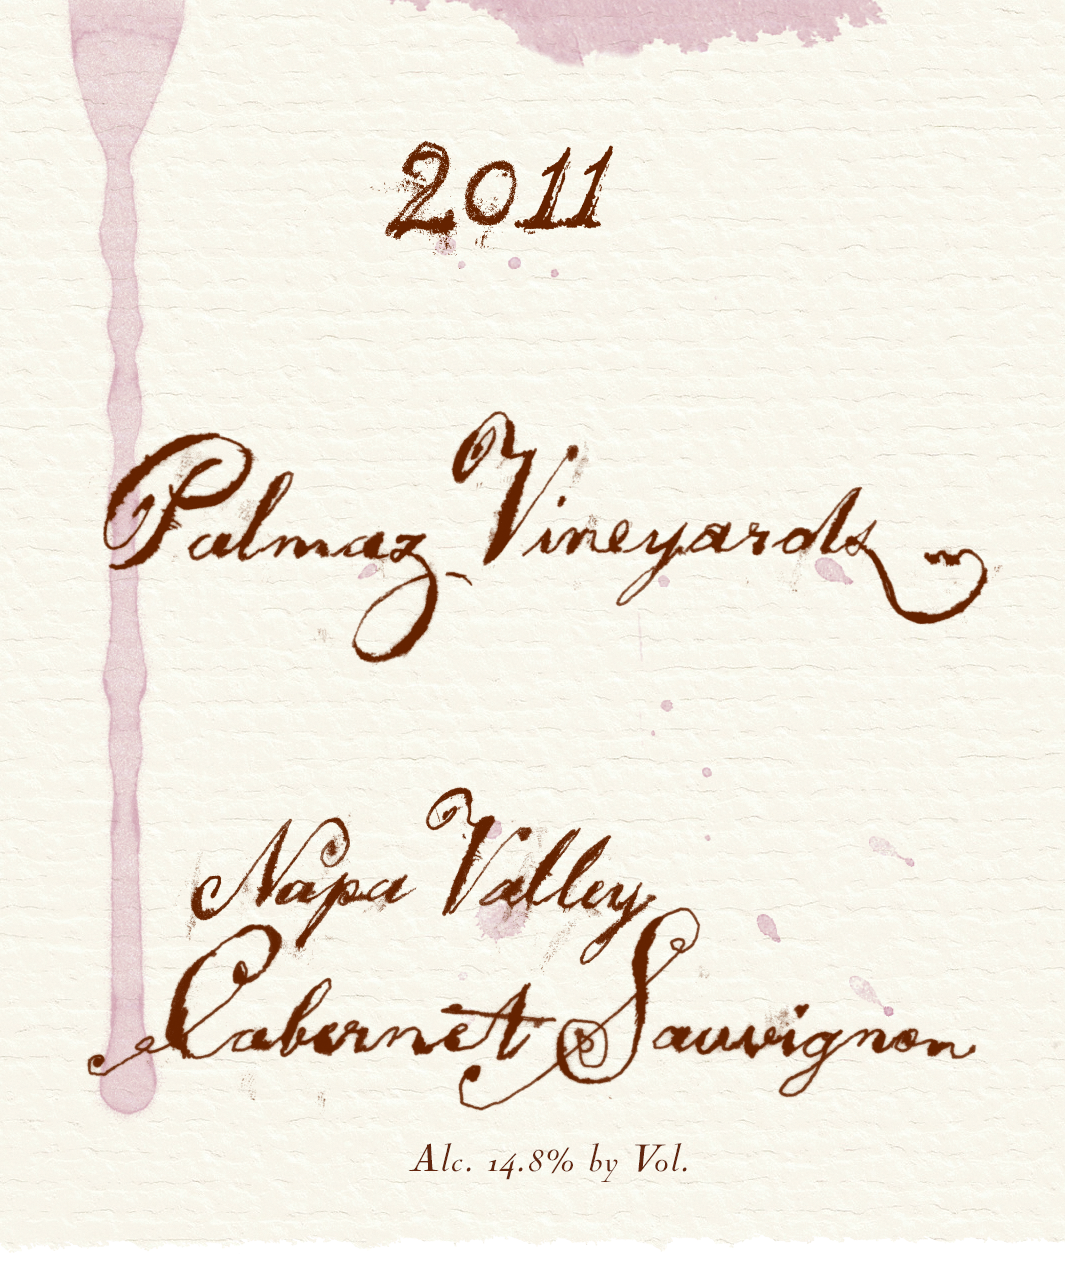 2011
Palmaz Vineyards
Napa Valley
Cabernet Sauvignon
Alc. 14.8% by Vol.